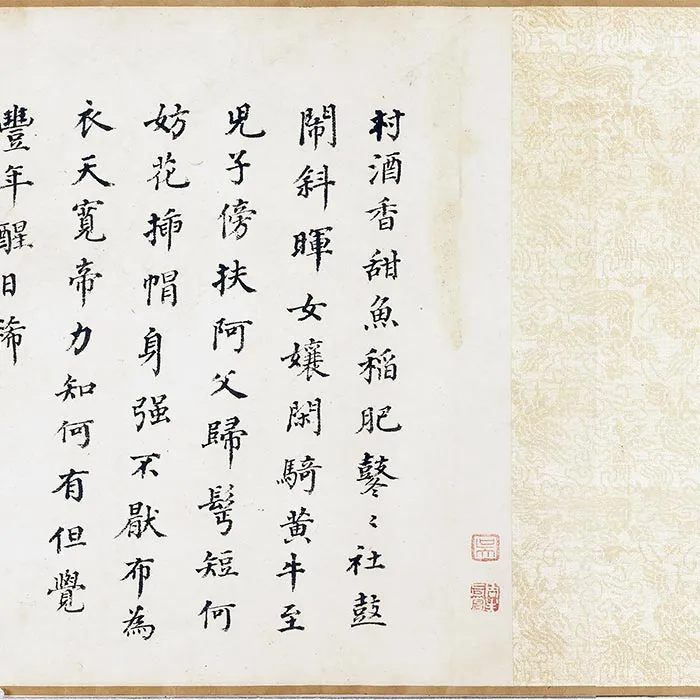 村酒香甜魚稻肥鼕〻社鼓
鬧斜暉女孃閑騎黃牛至
兒子傍扶阿父歸髩短何
妨花插帽身强不厭布為
衣天寬帝力知何有但覺
豐年醒日稀